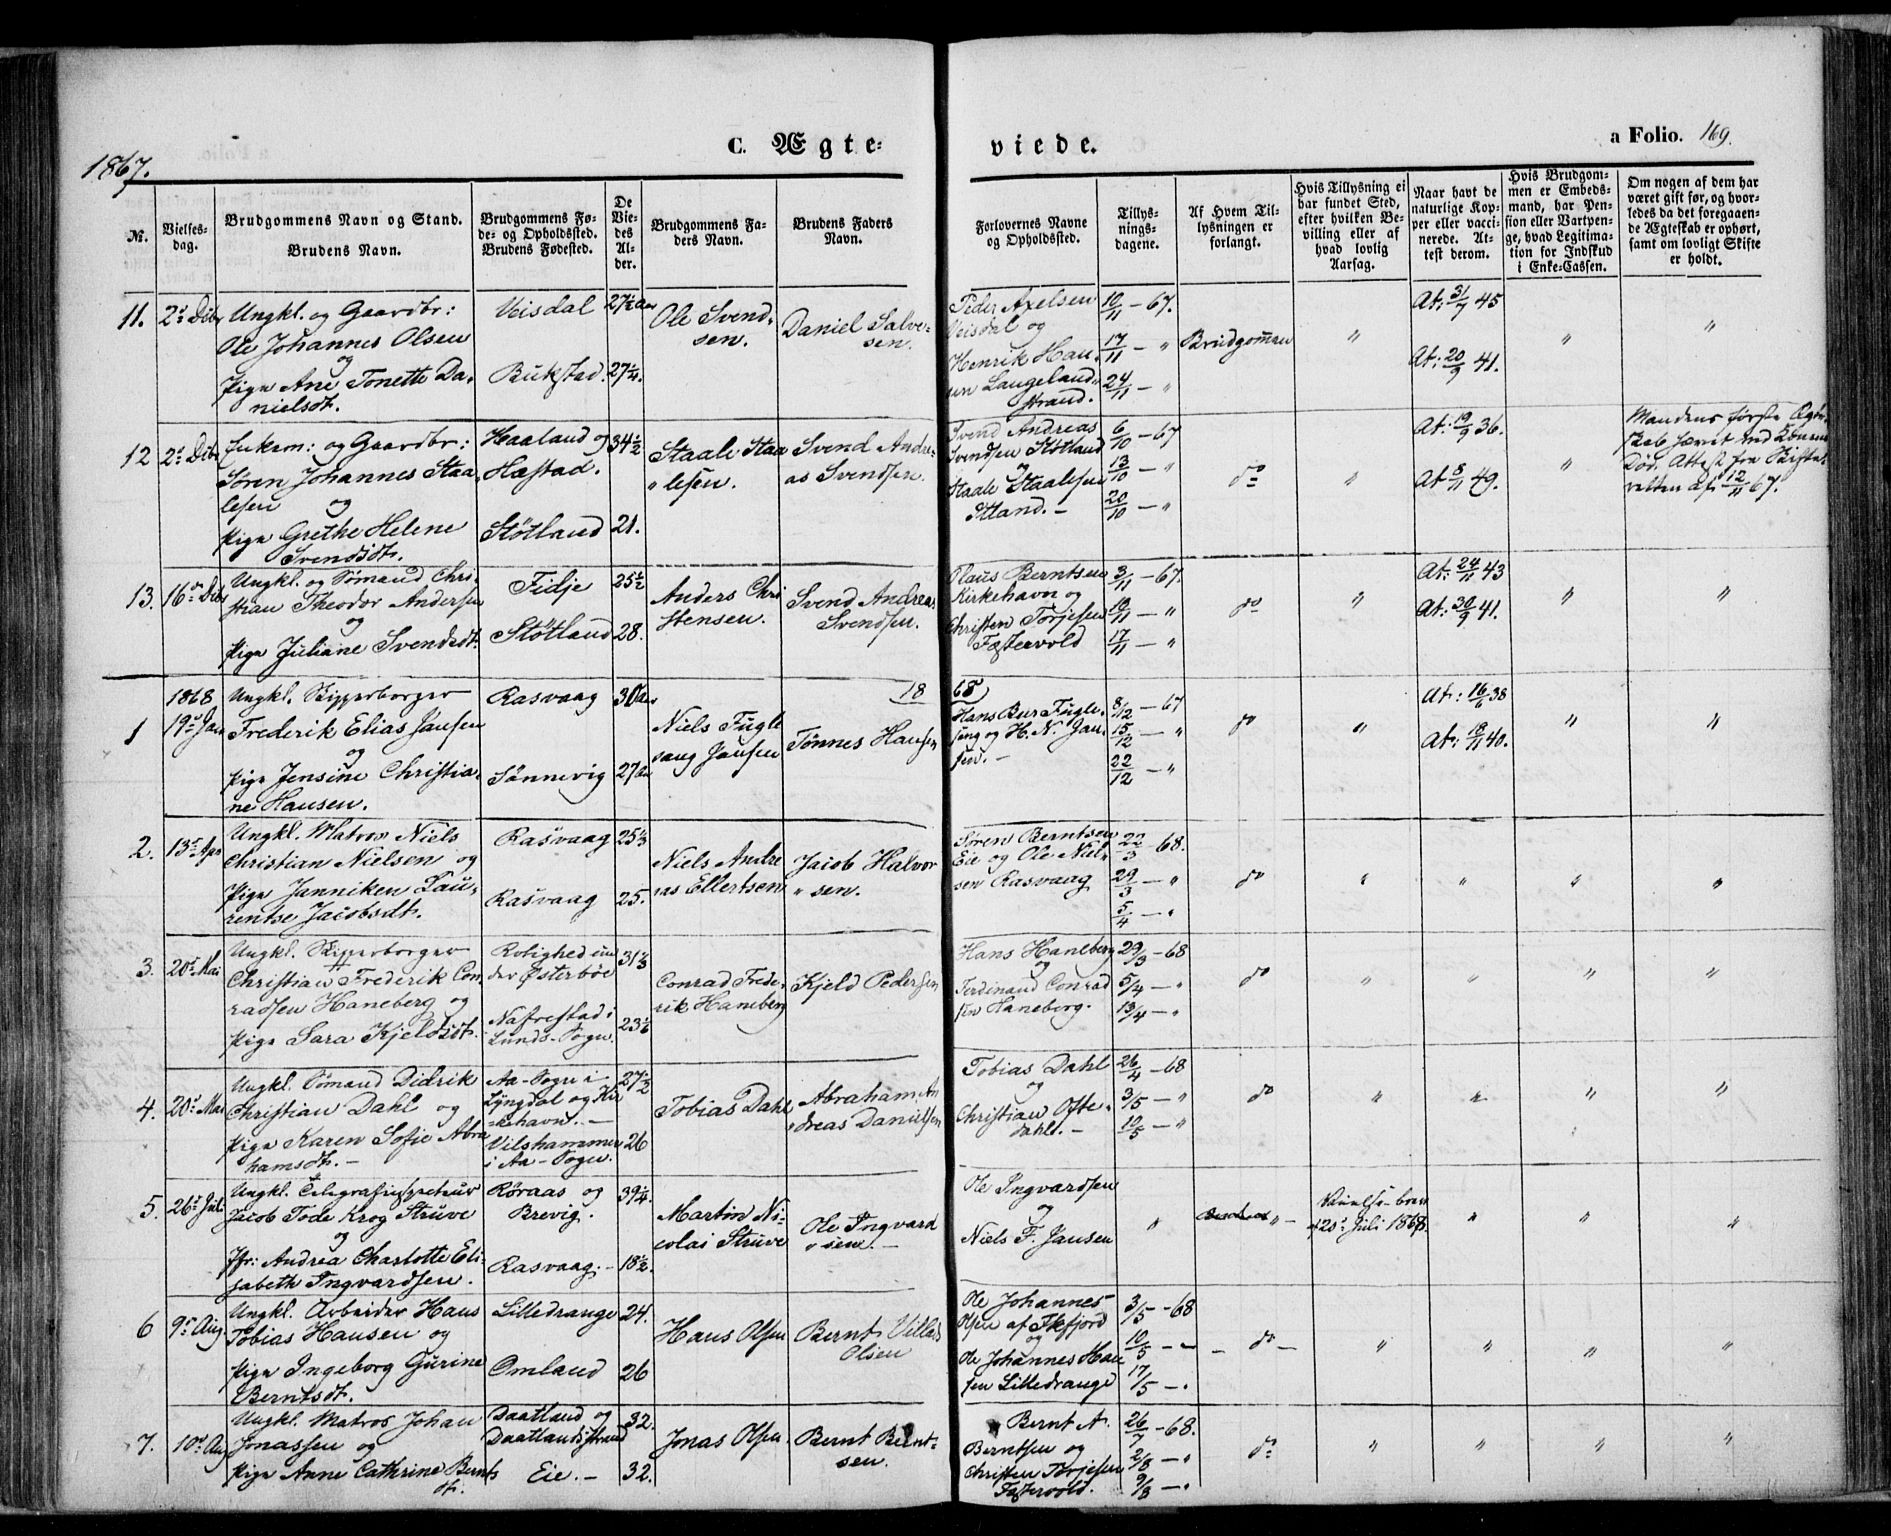 1867.
C. Ægte-
viede.
a Folio. 169.
№.
Vielses-
dag.
Brudgommens Navn og Stand.
Brudens Navn.
Brudgommens Fø-
de- og Opholdssted.
Brudens Fødested.
De
Vie-
des
Al-
der.
Brudgommens Fa-
ders Navn.
Brudens Faders
Navn.
Forlovernes Navne
og Opholdssted.
Tillys-
nings-
dagene.
Af Hvem Til-
lysningen er
forlangt.
Hvis Tillysning ei
har fundet Sted,
efter hvilken Be-
villing eller af
hvad lovlig
Aarsag.
Naar havt de
naturlige Kop-
per eller vacci-
nerede. At-
test derom.
Hvis Brudgom-
men er Embeds-
mand, har Pen-
sion eller Vartpen-
ge, hvad Legitima-
tion for Indskud
i Enke-Cassen.
Om nogen af dem har
været gift før, og hvor-
ledes da det foregaaen-
de Ægteskab er ophørt,
samt om lovligt Skifte
er holdt.
11. 2' Dibr Ungkl. og Gaardbr:
Ole Johannes Olsen
og
Pige Ane Tonette Da-
nielsdt.
Veisdal
Bukstad.
27½ Aar
27¼.
Ole Svend-
sen.
Daniel Salve-
sen.
Peder Axelsen
Veisdal og
Henrik Han-
sen Langeland-
strand.
10/11 - 67.
17/11 - "
24/11 - "
Brudgommen
"
At: 31/7 45
At: 20/9 41.
"
"
12 2' Dibr Enkem: og Gaardbr:
Sören Johannes Staa-
lesen og
Pige Grethe Helene
Svendsdt.
Haaland og
Hæstad.
Støtland
34½
21.
Staale Staa
"lesen.
Svend Andre-
as Svendsen.
Svend Andreas
Svendsen Støtland
og
Staale Staalesen
Itland. -
6/10 - 67
13/10 - "
20/10 - "
do
"
At: 19/9 36.
At 8/11 49.
"
Mandens første Ægte-
skab hævet ved Konens
Død. Attest fra Skifte-
retten af 12/11 67.
13. 16' Dibr Ungkl. og Sømand Chri-
stian Theodor Andersen
og
Pige Juliane Svendsdt.
Fidje
Støtland
25½
28.
Anders Chri
stensen.
Svend Andreas
Svendsen.
Claus Berntsen
Kirkehavn og
Christen Torjesen
Fæstervold
3/11 - 67.
10/11 - "
17/11 - "
do
"
At: 24/11 43
At: 30/9 41.
"
"
18 68
1 1868
19' Jan Ungkl. Skipperborger
Frederik Elias Jansen
og
Pige Jensine Christia-
ne Hansen.
Rasvaag
Sönnevig
30 Aar
27 Aar
Niels Fugle
sang Jansen
Tønnes Hansen
Hans Bur Fugle-
sang og H. N. Jan-
sen. -
8/12 - 67
15/12 - "
22/12 - "
do
"
At: 16/6 38
At: 18/11 40.
"
"
2. 13' Apr Ungkl. Matros Niels
Christian Nielsen og
Pige Janniken Lau-
rentse Jacobsdt.
Rasvaag
Rasvaag
25⅓
25.
Niels Andre
as Ellertsen
Jacob Halvor
"sen.
Søren Berntsen
Eie og Ole Niel-
sen Rasvaag
22/3 68.
29/3 - "
5/4 - "
do
"
"
"
"
3. 20' Mai Ungkl. Skipperborger
Christian Frederik Con-
radsen Haneberg og
Pige Sara Kjeldsdt.
Rolighed un
der Østerbøe
Nafrestad i
Lunds-Sogn.
31⅓
23⅙
Conrad Frede-
rik Haneberg
Kjeld Pedersen
Hans Haneberg
og
Ferdinand Conrad
sen Haneberg.
29/3 - 68
5/4 - "
13/4 - "
do
"
"
"
"
4. 20' Mai Ungkl. Sømand Didrik
Christian Dahl og
Pige Karen Sofie Abra
hamsdt. -
Aa-Sogn i
Lyngdal og Kir
kehavn. -
Vilshammer
i Aa-Sogn.
27½
26
Tobias Dahl
Abraham An
"dreas Danielsen
Tobias Dahl
og
Christian Ofte-
dahl. -
26/4 - 68
3/5 - "
10/5 - "
do
"
"
"
"
5. 26' Juli Ungkl. Telegrafinspecteur
Jacob Tode Krog Struve
og
Jfr: Andrea Charlotte Eli-
sabeth Ingvardsen.
Røraas og
Brevig.
Rasvaag. -
39¼
18½.
Martin Ni-
colai Struve
Ole Ingvard
"sen. -
Ole Ingvardsen
og
Niels F. Jansen
"
" -
20' Juli 1868.
"
"
"
6 9' Aug. Ungkl. Arbeider Hans
Tobias Hansen og
Pige Ingeborg Gurine
Berntsdt.
Lilledrange
Omland
24.
26
Hans Olsen
Bernt Villads
Olsen
Ole Johannes
Olsen af Skfjord
og
Ole Johannes Han
sen Lilledrange
3/5 - 68
10/5 - "
17/5 - "
- do -
"
"
"
"
7. 10' Aug Ungkl. Matros Johan
Jonassen og
Pige Anne Cathrine Bernts
dt.
Daatland og
Daatlandsstrand
Eie. -
32.
32.
Jonas Olsen
Bernt Bernt-
sen.
Bernt A.
Berntsen og
Christen Torjesen
Fæstervold.
26/7 - 68.
2/8 - "
9/8 - "
do
"
"
"
"